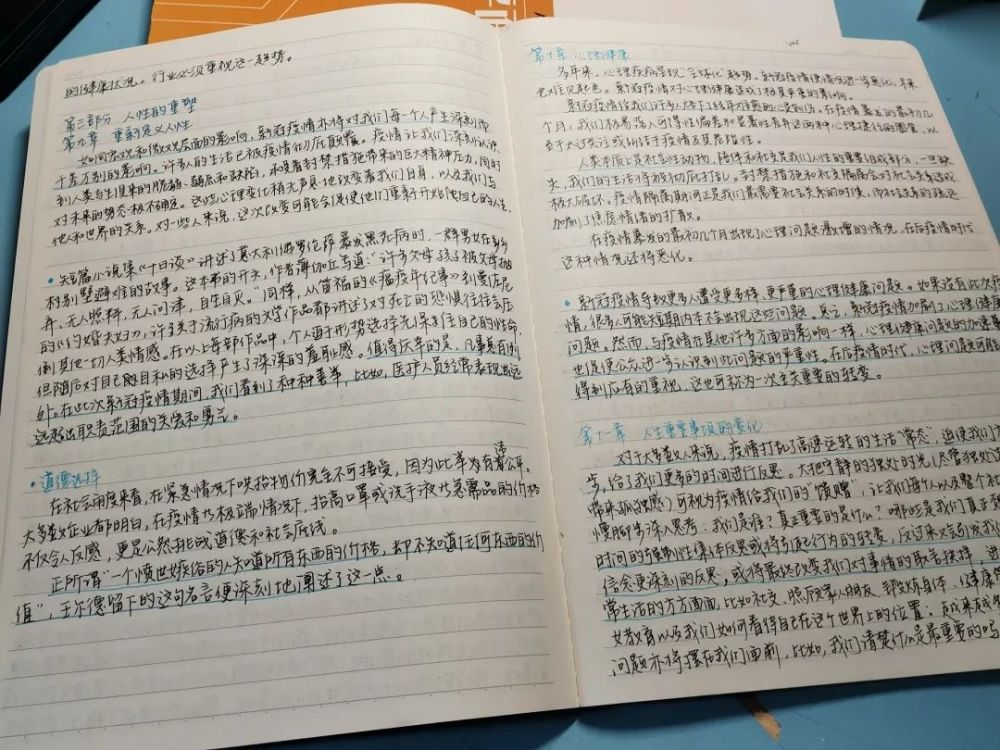 的健康状况。行业必须重视这一趋势。
第三部分 人性的重塑
第九章 重新定义人性
如同宏观和微观层面的影响,新冠疫情亦将对我们每一个人产生深刻而
千差万别的影响。许多人的生活已被疫情彻底颠覆。疫情让我们深刻认识
到人类与生俱来的脆弱、弱点和缺陷,承受着封禁措施带来的巨大精神压力,同时
对未来的势态极不确定。这些心理变化悄无声息地改变着我们自身,以及我们与
他人和世界的关系。对一些人来说,这次改变可能会促使他们重新开始
自己的人生.
• 短篇小说集《十日谈》讲述了意大利佛罗伦萨暴发黑死病时,一群男女在乡
村别墅避难的故事。这本书的开头,作者薄伽丘写道:“许多父母孩子被父母抛
弃,无人照料,无人问津,自生自灭。”同样,从笛福的《瘟疫年纪事》到曼佐尼
的《约婚夫妇》,许多关于流行病的文学作品都讲述了对死亡的恐惧往往会压
倒其他一切人类情感。在以上每部作品中,个人迫于形势选择先保住自己的性命,
但随后对自己的自私的选择产生了深深的羞耻感。值得庆幸的是,凡事总有例
外。在此次新冠疫情期间,我们看到了种种善举,比如,医护人员经常表现出远
远超出职责范围的关爱和勇气。
• 道德选择
在社会角度来看,在紧急情况下哄抬物价完全不可接受,因为此举为有悖公平.
大多数企业都明白,在疫情等极端情况下,抬高口罩或洗手液等急需品的价格
不仅令人反感,更是公然挑战道德和社会底线。
正所谓“一个愤世嫉俗的人知道所有东西的价格,却不知道任何东西的价
值”,王尔德留下的这句名言便深刻地阐述了这一点。
第十章 心理健康
多年来,心理疾病呈现“全球化”趋势。新冠疫情使情况进一步恶化,未来
也难见起色。新冠疫情对心理健康造成了极其严重的影响。
新冠疫情给我们许多人带了经年难愈的心灵创伤。在疫情暴发的最初几
个月,我们极易落入可得性偏差和显著性差异这两种心理捷径的圈套,以
至于太过关注或纠结于疫情及其危险性。
人类本质上是社会性动物,陪伴和社交是我们人性的重要组成部分,一旦缺
失,我们的生活将被彻底打乱。封禁措施和社交隔离会对社会关系造成
极大破坏。疫情隔离期间正是我们最需要社会关系的时候,而社会关系的
加剧了焦虑情绪的扩散。
在疫情暴发的最初几个月出现了心理问题激增的情况,在后疫情时代
这种情况还将恶化。
• 新冠疫情导致更多人遭受更多样、更严重的心理健康问题。如果没有此次疫
情,很多人可能短期内本不会出现这些问题。总之,新冠疫情加剧了心理健康
问题。然而,与疫情在其他许多方面的影响一样,心理健康问题的加速暴
也促使公众进一步认识到此问题的严重性。在后疫情时代,心理问题可能
得到应有的重视,这也可称为一次至关重要的转变。
第十一章 人生重要事项的变化
对于大多数人来说,疫情打乱了高速运转的生活“常态”,迫使我们
步,给了我们更多的时间进行反思。大把平静的独处时光(尽管独处
带来孤独感)可视为疫情给我们的“馈赠”,让我们每个人以及整个社
慢脚步深入思考:我们是谁?真正重要的是什么?哪些是我们真正
时间的强制性集体反思或将引起行为的转变,反过来又会引发我们
信念更深刻的反思,或将最终改变我们对事情的取舍抉择,进
常生活的方方面面,比如社交、照顾家人朋友、锻炼身体、健康
女教育以及我们如何看待自己在这个世界上的位置;
问题亦将摆在我们面前,比如,我们清楚什么是最重要的吗